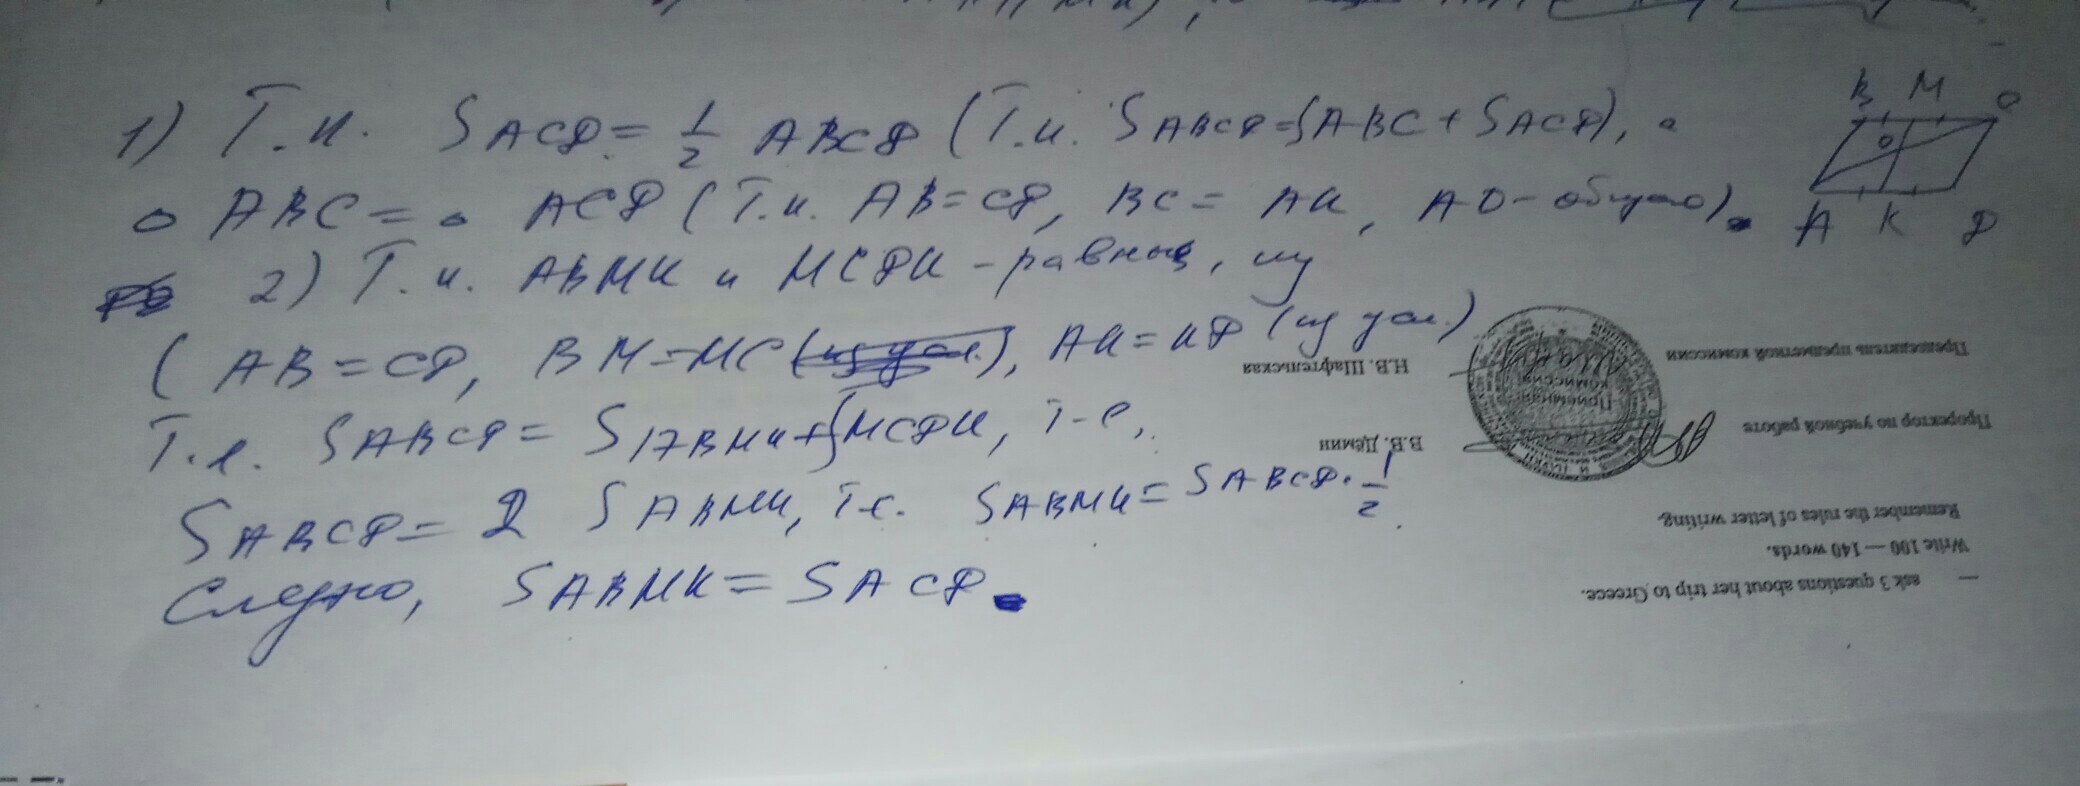 1) Т.к. SACD = 1/2 ABCD (Т.к. SABCD = SABC + SACD), △
△ ABC = △ ACD (Т.к. AB = CD, BC = AK, AD - общая).
2) Т.к. ABMK и MCDK - равные, из
( AB = CD, BM = MC, AK = KD (из усл.)
Т.е. SABCD = SABMK + SMCDK, т.е.
SABCD = 2 SABMK, т.е. SABMK = SABCD · 1/2.
Следно, SABMK = SACD.
B M C
O
A K D
Председатель предметной комиссии
Н.В. Шафтельская
Проректор по учебной работе
В.В. Дёмин
Приемная
комиссия
Remember the rules of letter writing.
Write 100 — 140 words.
— ask 3 questions about her trip to Greece.